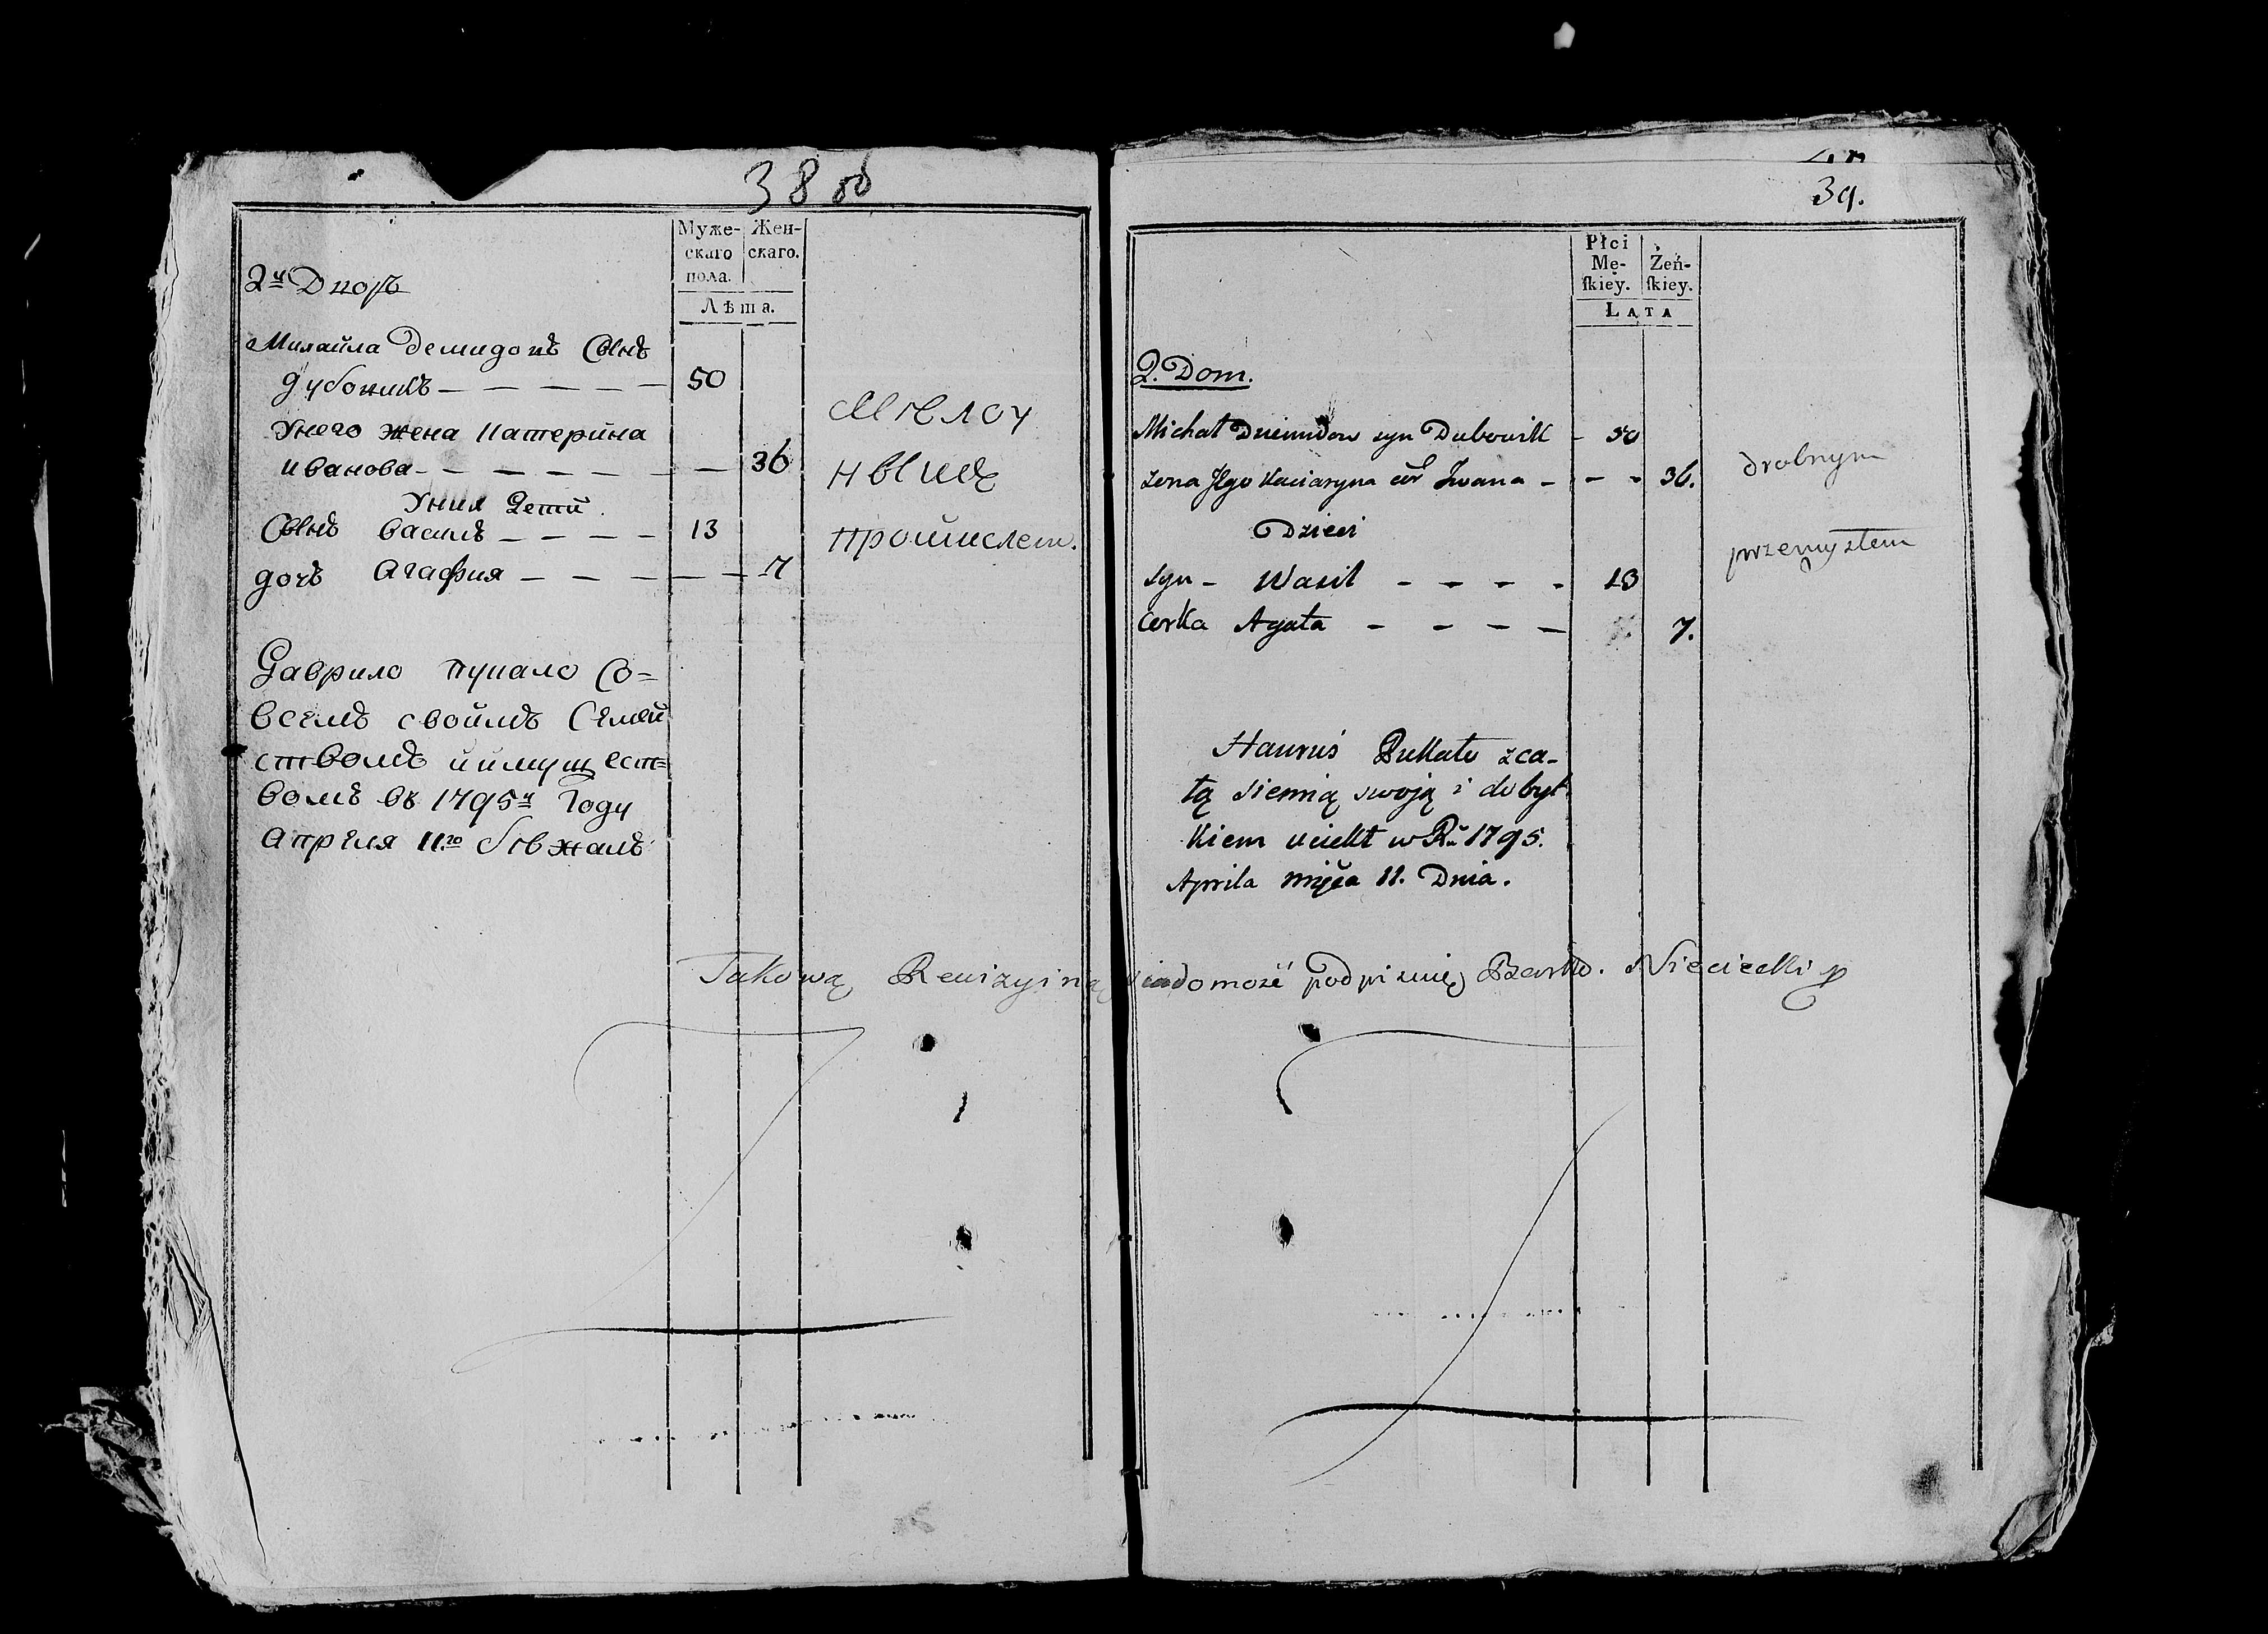 38 об
Муже-
скаго
пола.
Жен-
скаго.
Лѣта.
2й Дворъ
Михайла Демидовъ Сынъ
Дубовикъ — — — — — 50
Унего жена Катерина
Иванова — — — — — — 36
Унихъ Дети
Сынъ Василъ — — — — 13
дочъ Агафия — — — — — 7
мѣлоч
нымъ
промислем.
Гаврило Пукало Со=
всемъ своимъ Семей
ствомъ иимущест=
вомъ въ 1795й Году
Апреля 11го бѣжалъ
39.
Płci
Mę-
ſkiey.
Żeń-
ſkiey.
LATA
2. Dom.
Michał Dziemidow syn Dubowik - 50
żona Jego Kaciaryna cór Iwana - - - 36.
Dzieci
syn - Wasil - - - - 13
Corka Agata - - - — 7.
drobnym
przemysłem
Hauruś Pukało zca-
łą siemią swoją i dobyt
kiem uciekł w Ru 1795.
Aprila mięca 11. Dnia.
Takową Rewizyiną wiadomość podpisuię